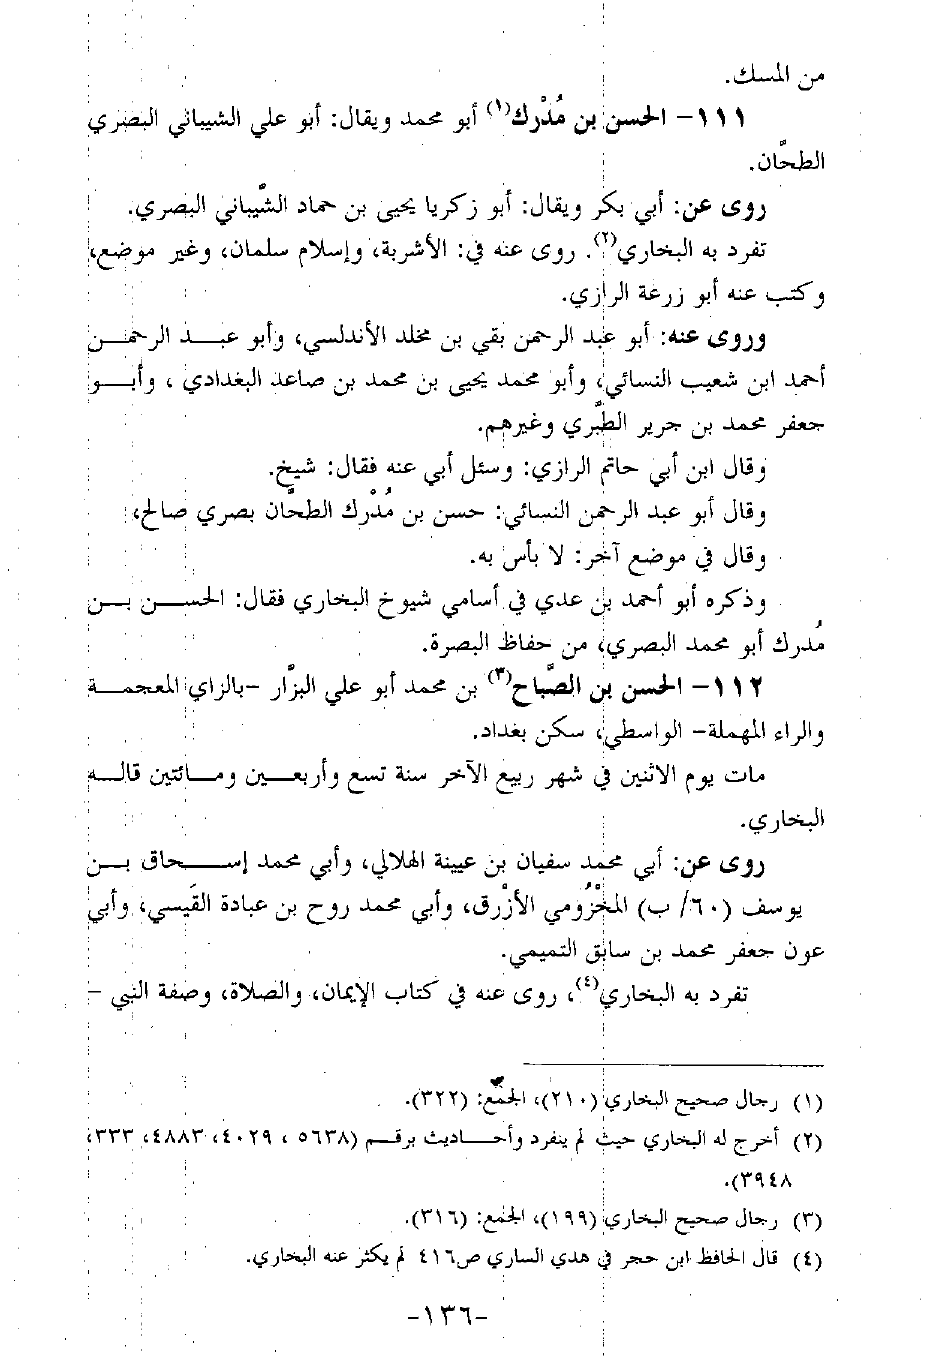 من المسك.
١١١- الحسن بن مُدْرك(١) أبو محمد ويقال: أبو علي الشيباني البصري
الطحَّان.
روى عن: أبي بكر ويقال: أبو زكريا يحيى بن حماد الشَّيباني البصري.
تفرد به البخاري(٢). روى عنه في: الأشربة، وإسلام سلمان، وغير موضع،
وكتب عنه أبو زرعة الرازي.
وروى عنه: أبو عبد الرحمن بقي بن مخلد الأندلسي، وأبو عبد الرحمن
أحمد ابن شعيب النسائي، وأبو محمد يحيى بن محمد بن صاعد البغدادي ، وأبو
جعفر محمد بن جرير الطَّبري وغيرهم.
وقال ابن أبي حاتم الرازي: وسئل أبي عنه فقال: شيخ.
وقال أبو عبد الرحمن النسائي: حسن بن مُدْرك الطحَّان بصري صالح،
وقال في موضع آخر: لا بأس به.
وذكره أبو أحمد بن عدي في أسامي شيوخ البخاري فقال: الحسن بن
مُدرك أبو محمد البصري، من حفاظ البصرة.
١١٢- الحسن بن الصَّباح(٣) بن محمد أبو علي البزَّار -بالزاي المعجمة
والراء المهملة- الواسطي، سكن بغداد.
مات يوم الاثنين في شهر ربيع الآخر سنة تسع وأربعين ومائتين قاله
البخاري.
روى عن: أبي محمد سفيان بن عيينة الهلالي، وأبي محمد إسحاق بن
يوسف (٦٠/ب) المخْزُومي الأزْرق، وأبي محمد روح بن عبادة القَيسي، وأبي
عون جعفر محمد بن سابق التميمي.
تفرد به البخاري(٤)، روى عنه في كتاب الإيمان، والصلاة، وصفة النبي -
(١) رجال صحيح البخاري (٢١٠)، الجمع: (٣٢٢).
(٢) أخرج له البخاري حيث لم ينفرد وأحاديث برقم (٥٦٣٨ ، ٤٠٢٩، ٤٨٨٣، ٣٣٣،
٣٩٤٨).
(٣) رجال صحيح البخاري (١٩٩)، الجمع: (٣١٦).
(٤) قال الحافظ ابن حجر في هدي الساري ص٤١٦ لم يكثر عنه البخاري.
-١٣٦-